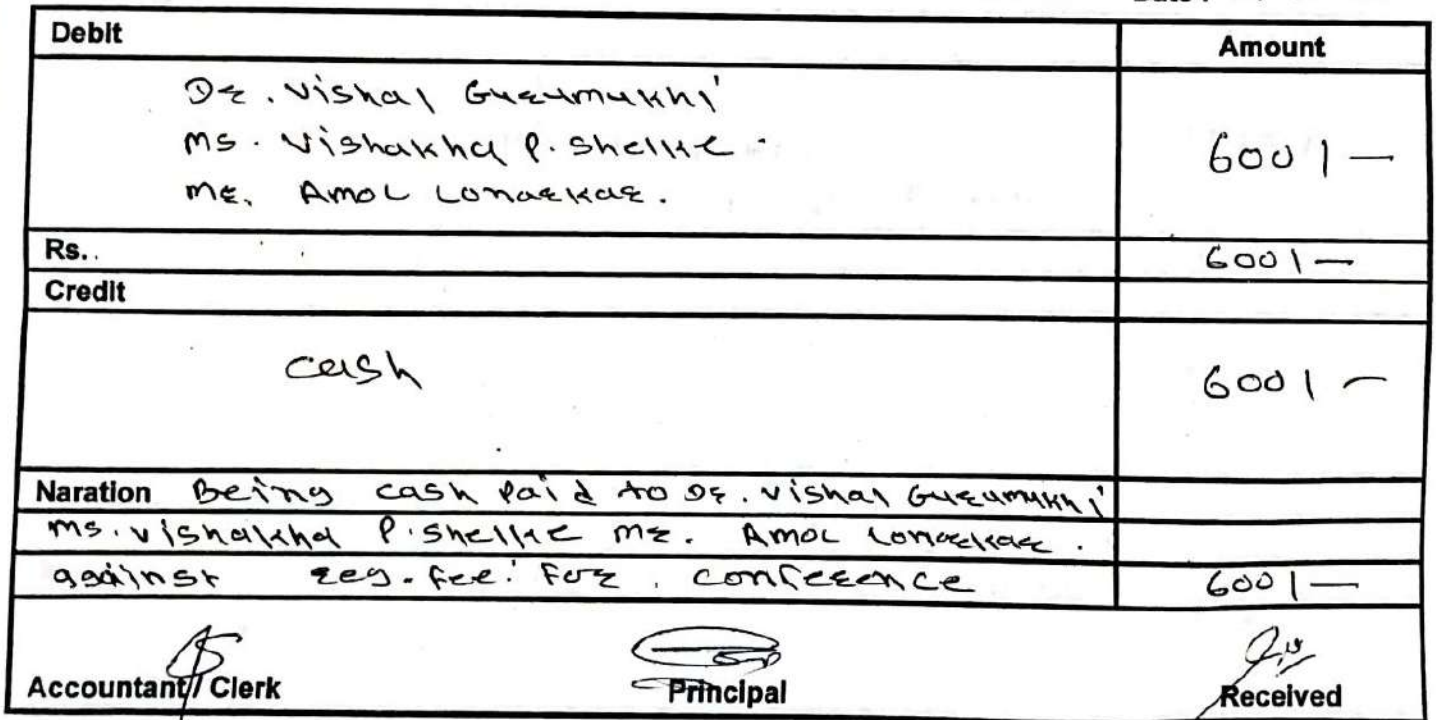 Debit Amount
Dr. Vishal Gurumukhi
Ms. Vishakha P. Shelke
Mr. Amol Lonarkar.
600/-
Rs. 600/-
Credit
Cash 600/-
Naration Being cash Paid to Dr. Vishal Gurumukhi
Ms. Vishakha P. Shelke Mr. Amol Lonarkar.
against reg. fee. For conference 600/-
Accountant / Clerk Principal Received